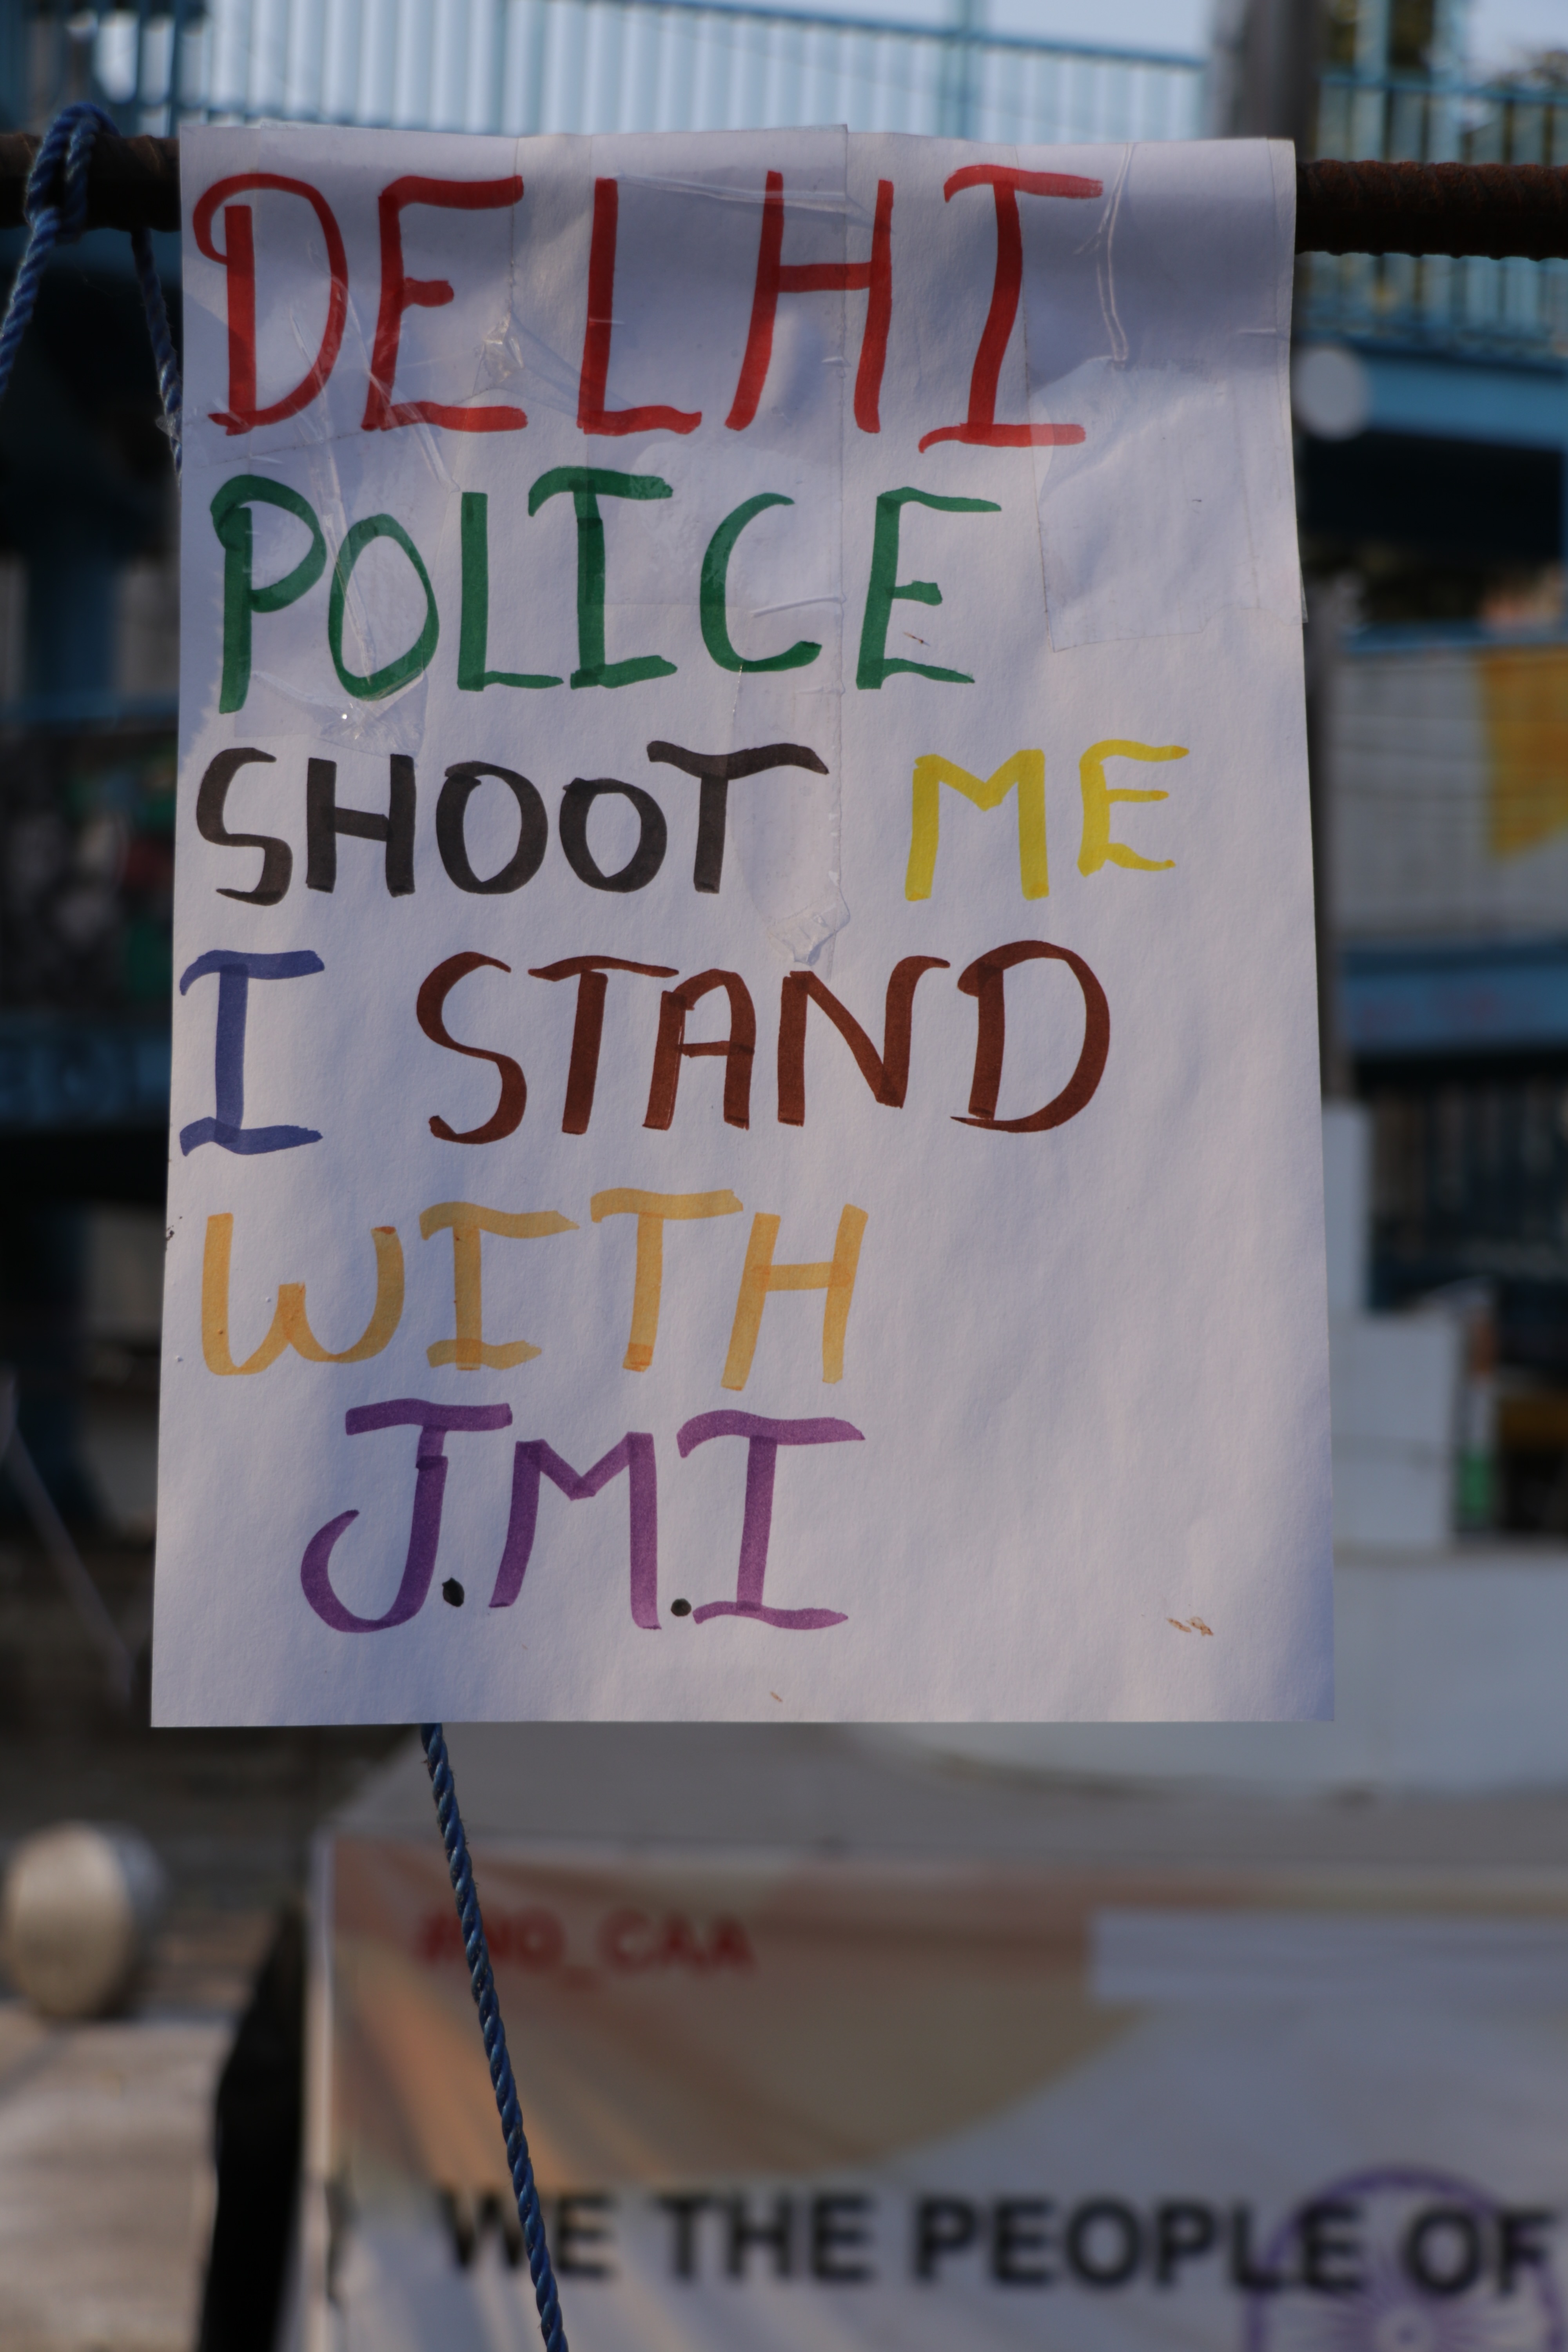 DELHI
POLICE
SHOOT ME
I STAND
WITH
J.M.I
#NO_CAA
WE THE PEOPLE OF